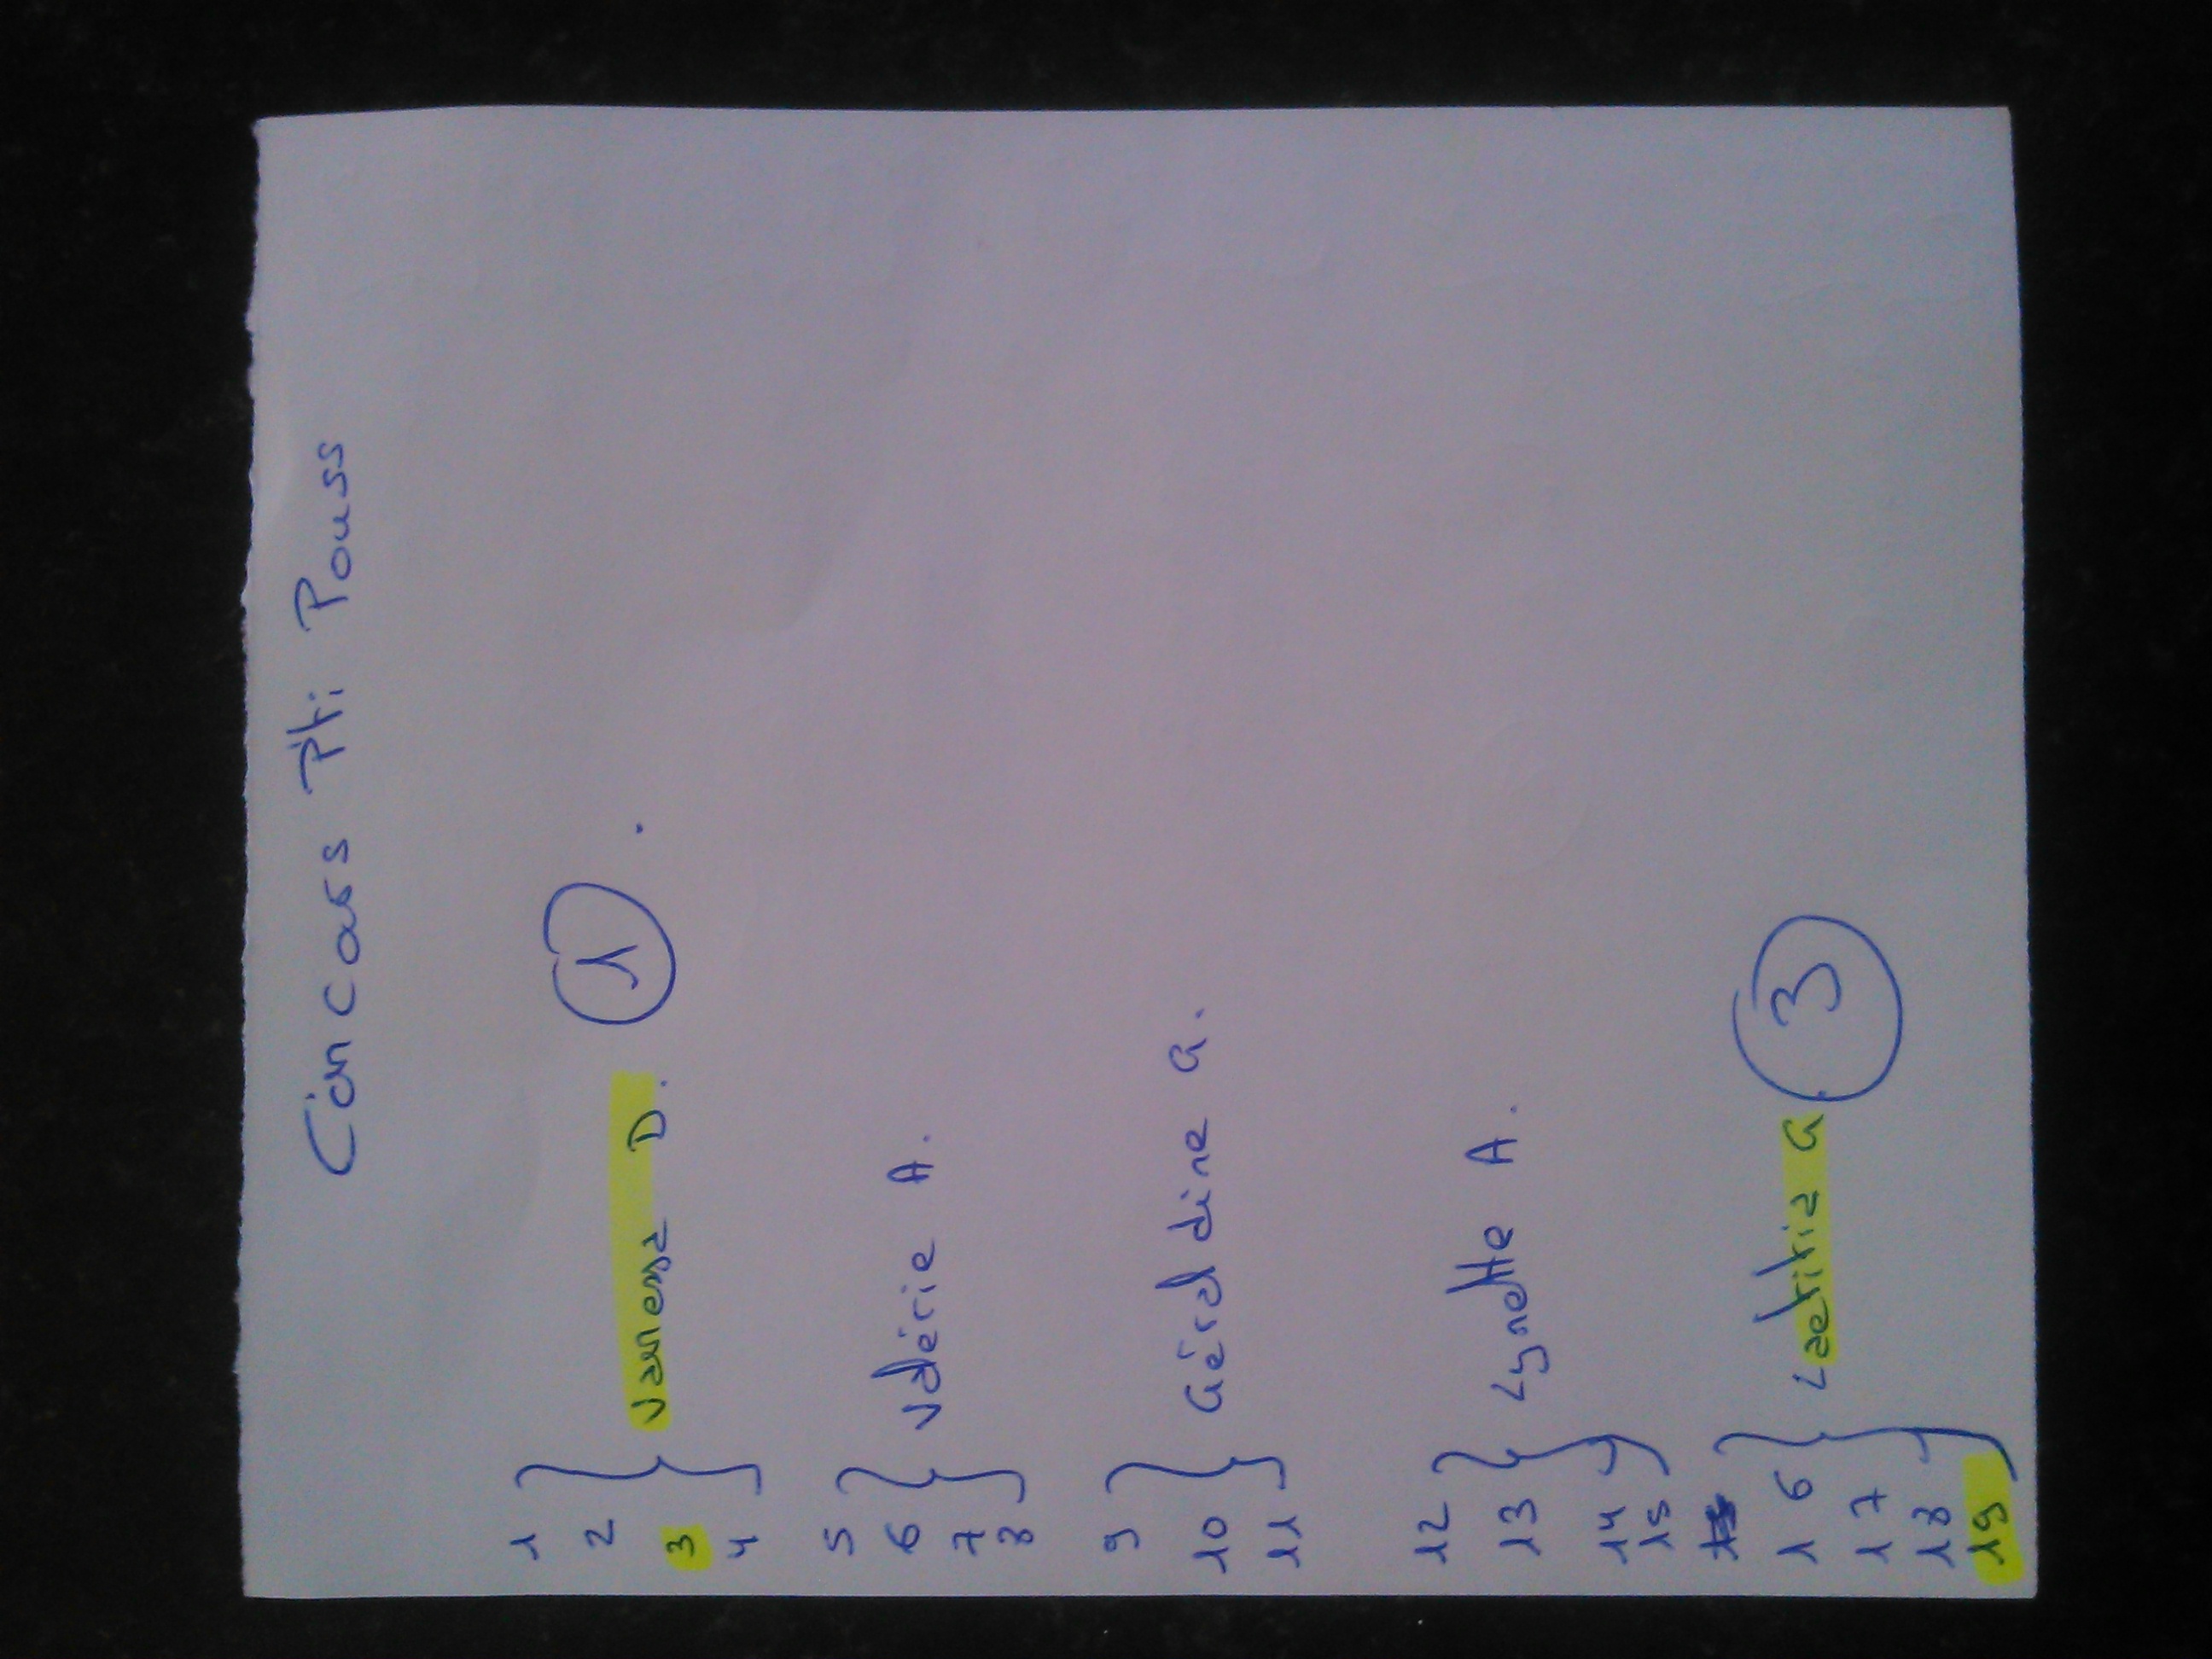 Concours Pti Pouss
1
2
3 Vanessa D. 1
4
5
6 Valérie A.
7
8
9
10 Géraldine G.
11
12
13 Lynette A.
14
15
16
17 Laetitia G. 3
18
19